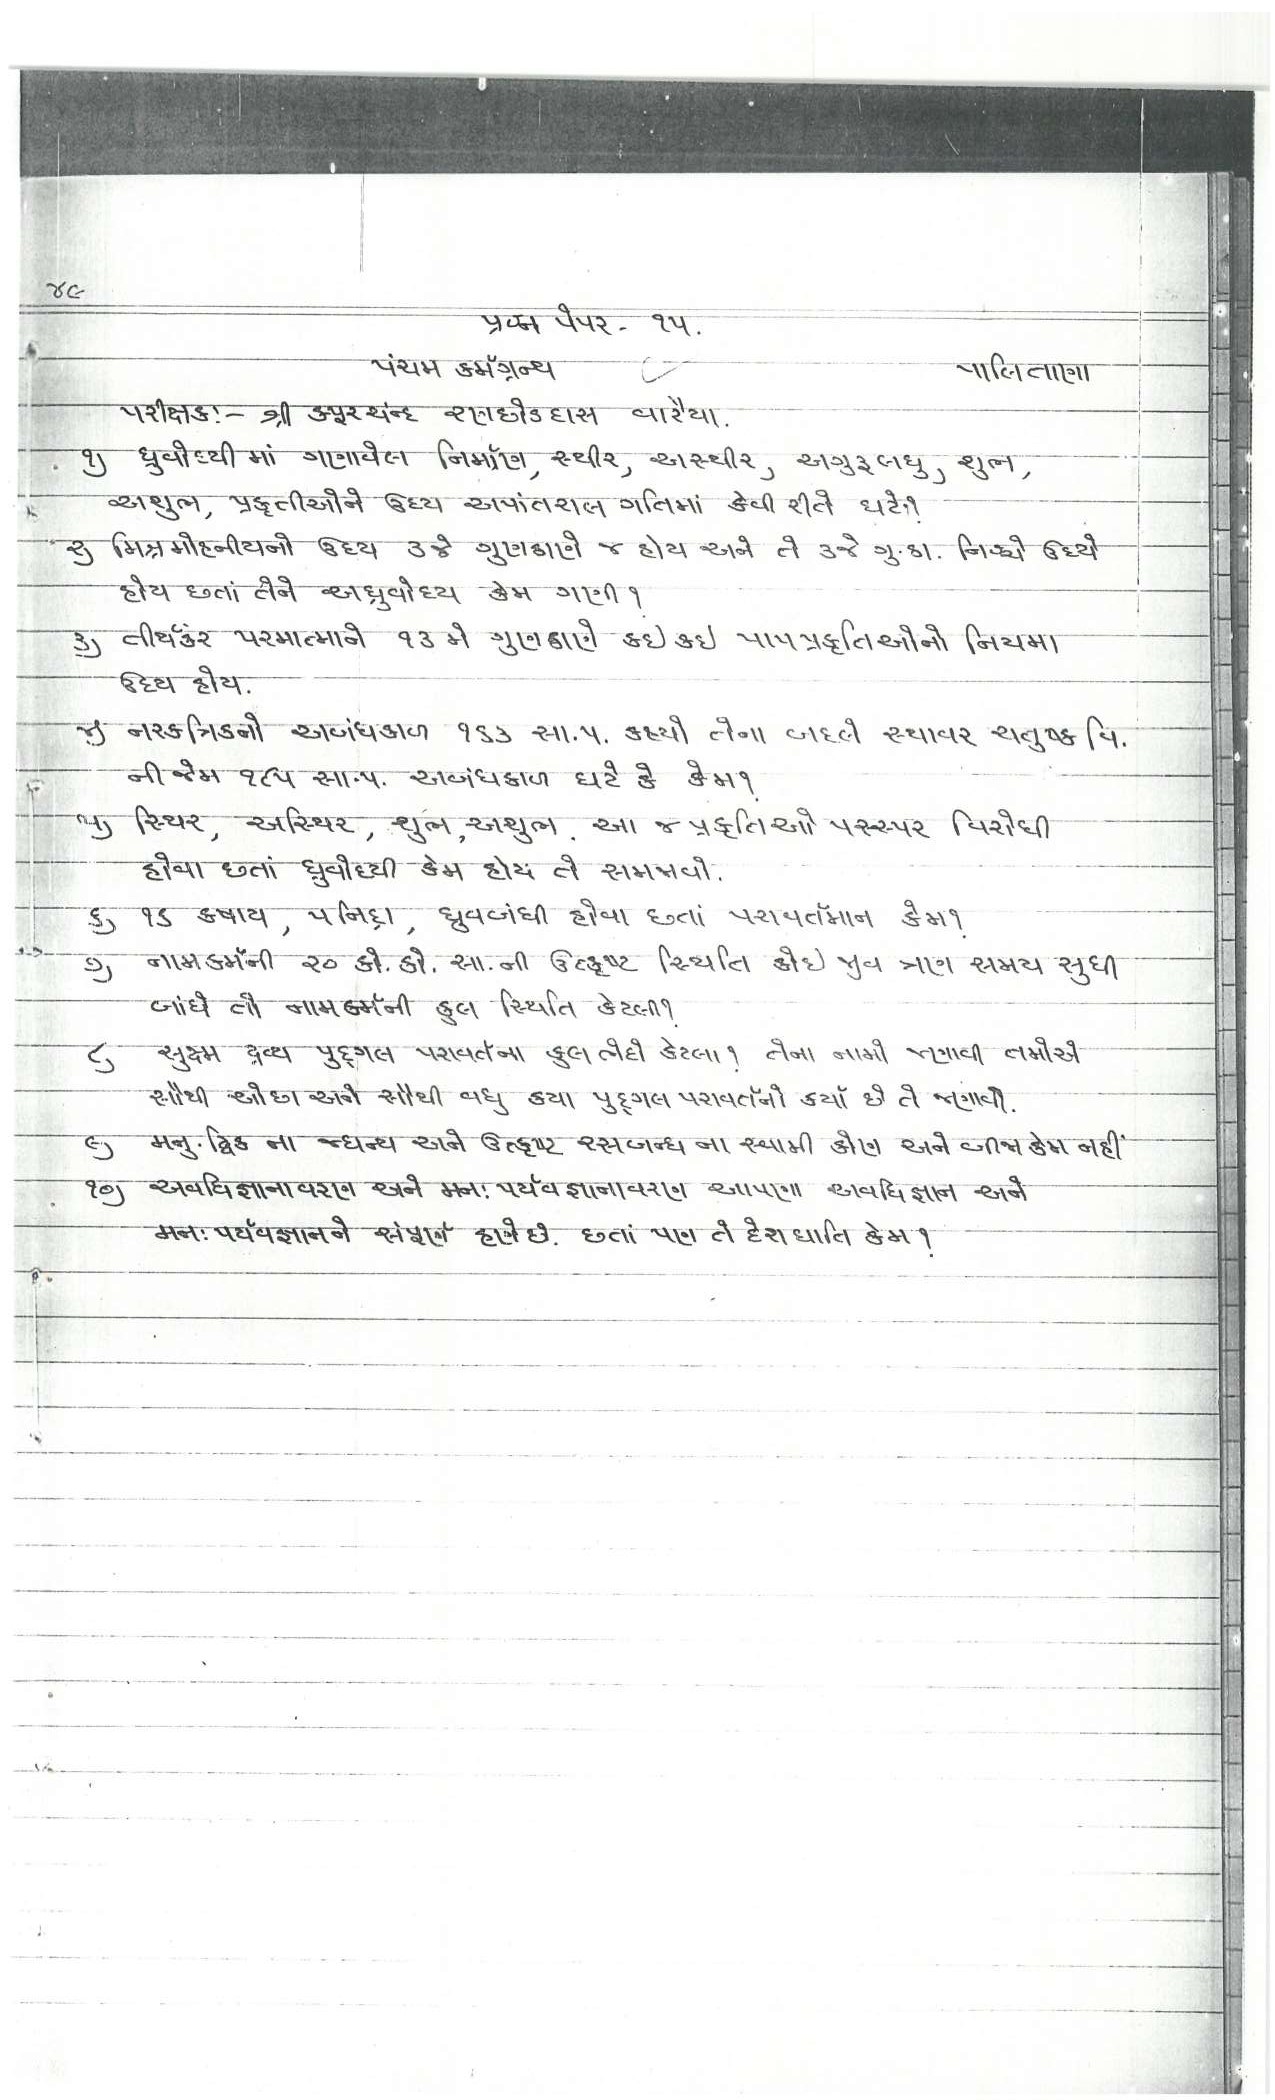 ૪૯
પ્રશ્ન પેપર - ૧૫.
પંચમ કર્મગ્રન્થ પાલિતાણા
પરીક્ષક:- શ્રી કપૂરચંન્દ રણછોડદાસ વારૈયા.
૧) ધ્રુવોદયીમાં ગણાવેલ નિર્માણ, સ્થીર, અસ્થીર, અગુરૂલઘુ, શુભ,
અશુભ, પ્રકૃતીઓને ઉદય અપાંતરાલ ગતિમાં કેવી રીતે ઘટે?
૨) મિશ્રમોહનીયનો ઉદય ૩જે ગુણઠાણે જ હોય અને તે ૩જે ગુ.ઠા. નિશ્ચે ઉદયે
હોય છતાં તેને અધ્રુવોદય કેમ ગણી?
૩) તીર્થંકર પરમાત્માને ૧૩ મે ગુણઠાણે કઇ કઇ પાપપ્રકૃતિઓનો નિયમા
ઉદય હોય.
૪) નરકત્રિકનો અબંધકાળ ૧૬૩ સા.પ. કહ્યો તેના બદલે સ્થાવર ચતુષ્ક વિ.
ની જેમ ૧૮૫ સા.પ. અબંધકાળ ઘટે કે કેમ?
૫) સ્થિર, અસ્થિર, શુભ, અશુભ. આ ૪ પ્રકૃતિઓ પરસ્પર વિરોધી
હોવા છતાં ધ્રુવોદયી કેમ હોય તે સમજાવો.
૬) ૧૬ કષાય, ૫ નિદ્રા, ધ્રુવબંધી હોવા છતાં પરાવર્તમાન કેમ?
૭) નામકર્મની ૨૦ કો. કો. સા. ની ઉત્કૃષ્ટ સ્થિતિ કોઇ જીવ ત્રણ સમય સુધી
બાંધે તો નામકર્મની કુલ સ્થિતિ કેટલી?
૮) સુક્ષ્મ દ્રવ્ય પુદ્ગલ પરાવર્તના કુલ ભેદો કેટલા? તેના નામો જણાવી તમોએ
સૌથી ઓછા અને સૌથી વધુ કયા પુદ્ગલ પરાવર્તનો કર્યા છે તે જણાવો.
૯) મનુ. દ્વિક ના જઘન્ય અને ઉત્કૃષ્ટ રસબન્ધ ના સ્વામી કોણ અને બીજા કેમ નહીં
૧૦) અવધિજ્ઞાનાવરણ અને મન:પર્યવજ્ઞાનાવરણ આપણા અવધિજ્ઞાન અને
મન:પર્યવજ્ઞાનને સંપૂર્ણ હણેછે. છતાં પણ તે દેશઘાતિ કેમ?